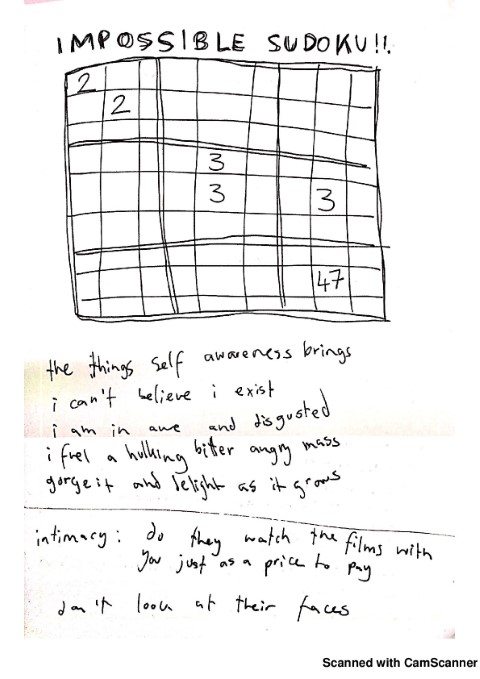 IMPOSSIBLE SUDOKU!!
2
2
3
3 3
47
the things self awareness brings
i can't believe i exist
i am in awe and disgusted
i fuel a hulking bitter angry mass
gorge it and delight as it grows
intimacy: do they watch the films with
you just as a price to pay
don't look at their faces
Scanned with CamScanner